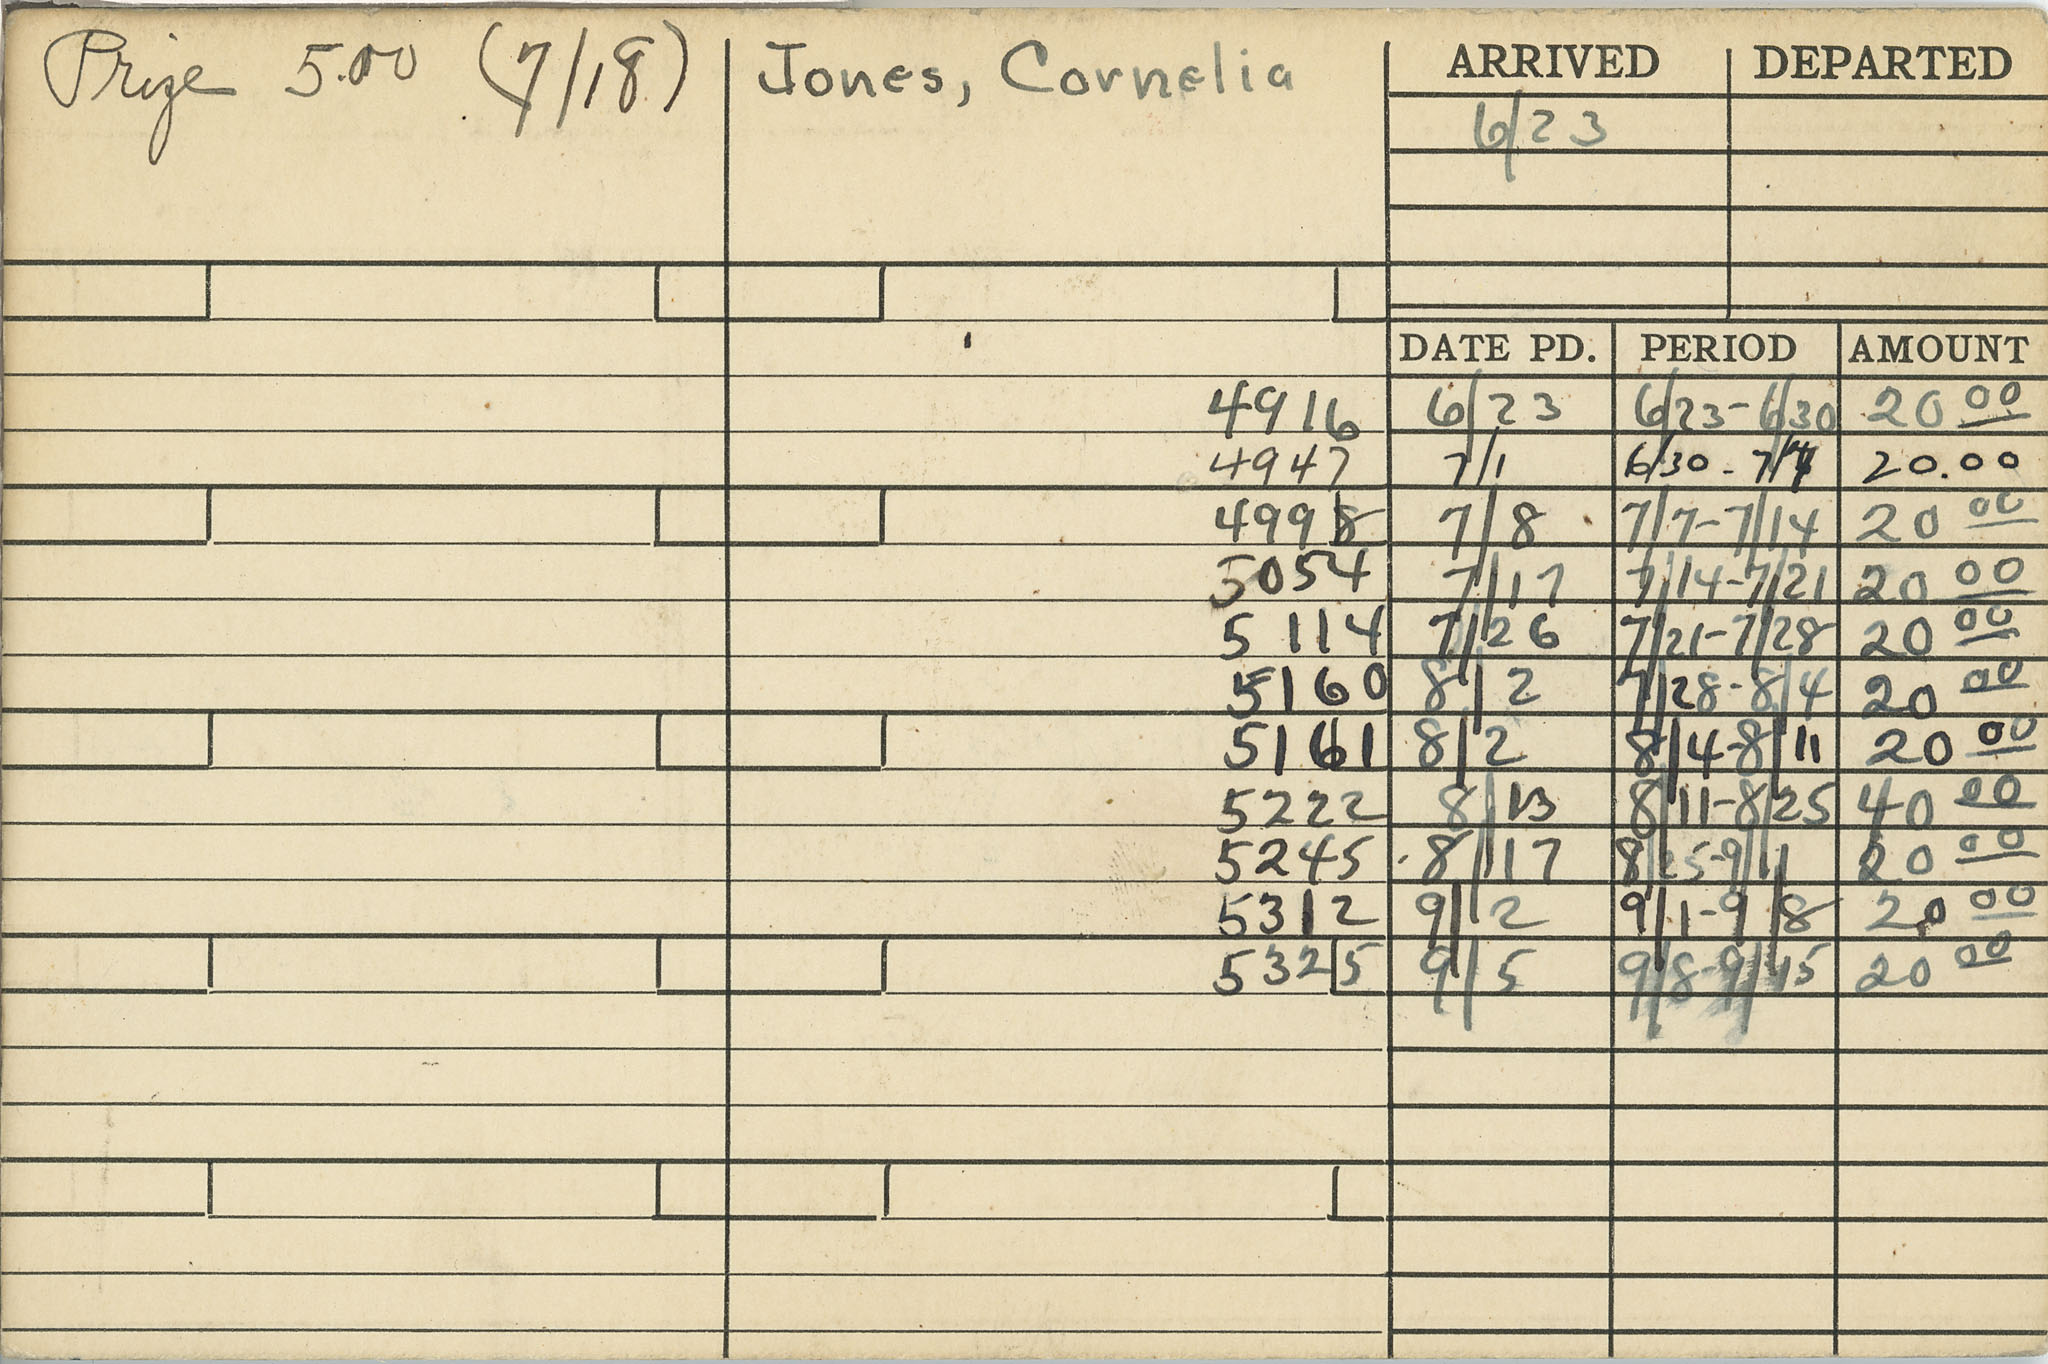 Prize 5.00 (7/18) Jones, Cornelia ARRIVED DEPARTED
6/23
DATE PD. PERIOD AMOUNT
4916 6/23 6/23-6/30 20 00
4947 7/1 6/30 - 7/7 20.00
4998 7/8 7/7-7/14 20 00
5054 7/17 7/14-7/21 20 00
5114 7/26 7/21-7/28 20 00
5160 8/2 7/28-8/4 20 00
5161 8/2 8/4-8/11 20 00
5222 8/13 8/11-8/25 40 00
5245 8/17 8/25-9/1 20 00
5312 9/2 9/1-9/8 20 00
5325 9/5 9/8-9/15 20 00